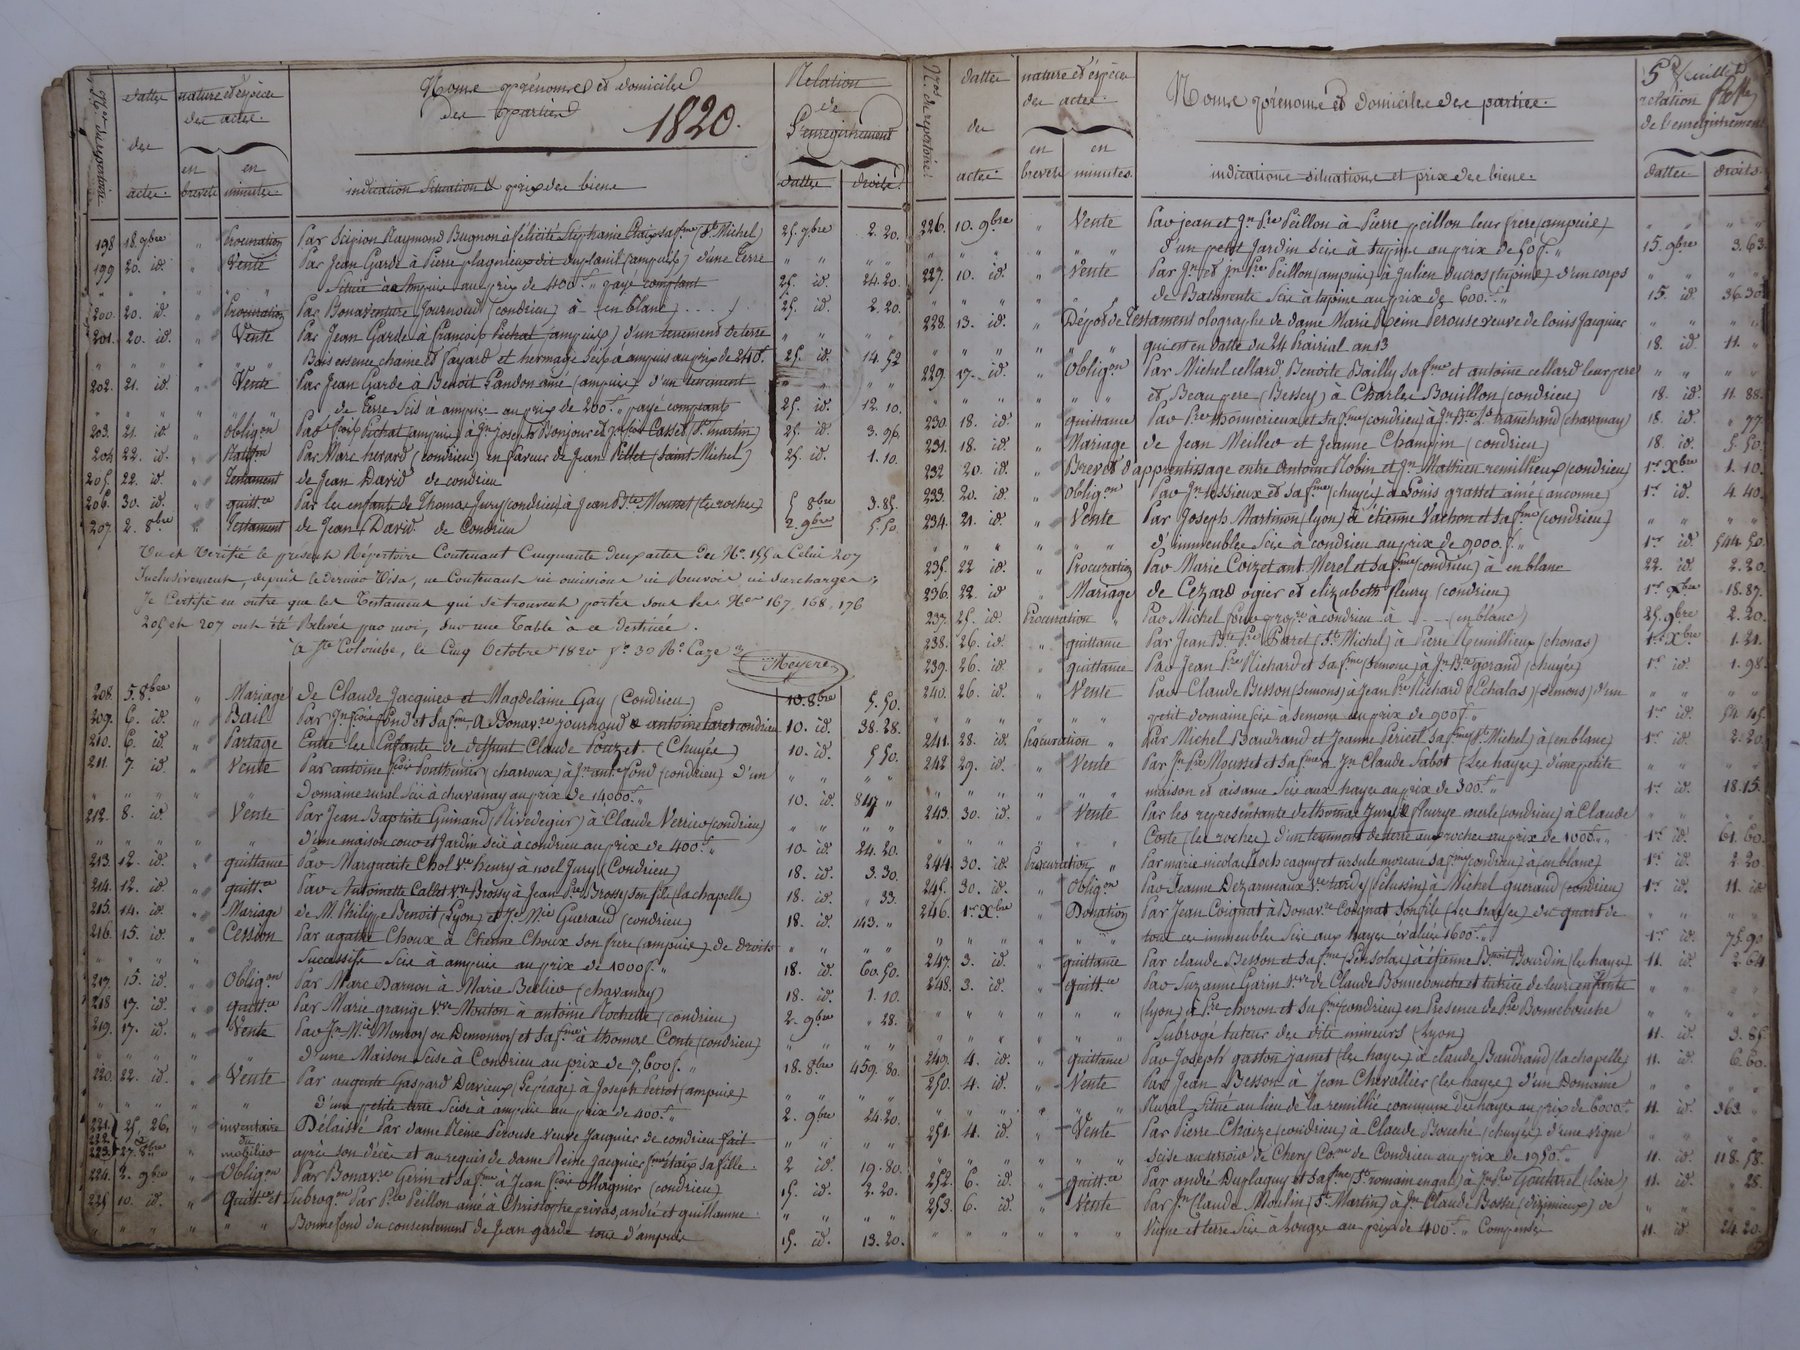 Nos du répertoire
dattes des actes
nature et espèces des actes
en brevets
en minutes
Noms prénoms et domiciles
des parties
1820.
indication situation & prix des biens
Relation
de
l'enregistrement
dattes
droits
198 18. 9bre " Procuration Par Scipion Raymond Bugnon à félicité Stéphanie sa fme (St Michel) 25. 9bre 2. 20.
199 20. id. " Vente Par Jean Garde à Pierre plagnieux dit (ampuis) d'une Terre " "
Située au ampuis au prix de 400f. " payé comptant 25. id. 24. 20.
200. 20. id. " Procuration Par Bonaventure Journoud (condrieu) à (en blanc) 25. id. 2. 20.
201. 20. id. " Vente Par Jean Garde à François (ampuis) d'un tenement de terre " "
Bois essence chaine et fayard et hermage scis a ampuis au prix de 240f. 25. id. 14. 52
202. 21. id. " Vente Par Jean Garde à Benoit Gandon ainé (ampuis) d'un tenement " "
de Terre Scis à ampuis au prix de 200f. " payé comptant 25. id. 12. 10.
203. 21. id. " Obligon Par fçois (ampuis) à Jn joseph Bonjour et Casset (St martin) 25. id. 3. 96.
204 22. id. " Par Marc herard (condrieu) en faveur de Jean Pillet (Saint Michel) 25. id. 1. 10.
205. 22. id. " Testament de Jean David de condrieu
206. 30. id. " quittce Par les enfants de Thomas Jury (condrieu) à Jean Bte Mousset (les roches) 5 8bre 3. 85.
207. 2. 8bre " Testament de Jean David de Condrieu 2. 9bre 5. 50.
Vu et Verifié le présent Répertoire Contenant Cinquante deux actes du No. 155 a Celui 207
Inclusivement, depuis le dernier Visa, ne Contenant ni omissions ni Renvois, ni surcharges;
Je Certifie en outre que les Testaments qui se trouvent portés sous les Nos 167, 168, 176
205 et 207 ont été Relevés par moi, sur une Table à ce destinée.
à Ste Colombe, le Cinq Octobre 1820 fo. 30 Ro. Caze 2
208 5. 8bre " Mariage de Claude Jacquier et Magdelaine Gay (Condrieu) 10. 8bre 5. 50.
209. 6. id. " Bail Par Jn fçois fond et Sa fme, A Bonavre journoud & antoine condrieu 10. id. 38. 28.
210. 6. id. " Partage Entre les Enfants de deffunt Claude (Chuyes) 10. id. 5 50.
211. 7 id. " Vente Par antoine fçois Ponthinier (charroux) à Jn ante fond (condrieu) d'un " "
Domaine rural Scis à chavanay au prix de 14000f. " 10. id. 847 "
212. 8. id. " Vente Par Jean Baptiste Guinand (Rivedegier) à Claude Verrier (condrieu) " "
d'une maison cour et Jardin Scis à condrieu au prix de 400f. " 10. id. 24. 20.
213. 12. id. " quittance Par Marguerite Chol Ve henry à noel Jury (Condrieu) 18. id. 3. 30.
214. 12. id. " quittce Par Antoinette Callet Vve Brossy à Jean Pre Brossy son fils (la chapelle) 18. id. " 33.
215. 14. id. " Mariage de M. Philippe Benoit (Lyon) et Je Mie Gueraud (condrieu) 18. id. 143. "
216. 15. id. " Cession Par agathe Choux à Etienne Choux son frere (ampuis) de droits " "
Successifs Scis à ampuis au prix de 1000f. " 18. id. 60. 50.
217. 15 id. " Obligon Par Marc Darnon à Marie Berlier (chavanay) 18. id. 1. 10.
218 17. id. " quittce Par Marie grange Vve Mouton à antoine Rochette (condrieu) 2. 9bre " 28.
219. 17. id. " Vente Par Jn Mie Monroy ou Demonroy et Sa fme à thomas Conte (condrieu) " "
d'une Maison Scise à Condrieu au prix de 7,600f. " 18. 8bre 459. 80.
220. 22. id. " Vente Par auguste Gaspard Davieux (le péage) à Joseph (ampuis) " "
d'une petite terre Scise à ampuis au prix de 400f. " 2. 9bre 24. 20.
221. 25, 26, " inventaire Délaissé Par dame Reine Perouse veuve Jacquier de condrieu fait " "
222. 223. 27. 8bre " mobilier après son décès et au requis de dame Reine Jacquier sa fille. 2 id. 19. 80.
224. 2. 9bre " Obligon Par Bonavre Gerin et Sa fme à Jean fçois Magnier (condrieu) 15. id. 2. 20.
225 10. id. " Quittce et Subrogon Par Pre Peillon ainé à Christophe privas, andré et guillaume " "
Bonnefond du consentement de Jean garde tous d'ampuis 15. id. 13. 20.
Nos du répertoire
dattes des actes
nature et espèces des actes
en brevets
en minutes
Noms prénoms et domiciles des parties.
indications situations et prix des biens.
5e feuillet
relation
de l'enregistrement
dattes
droits
226. 10. 9bre " Vente Par jean et Jn Pre Peillon à Pierre peillon leur frere (ampuis) " "
d'un petit Jardin Scis à tupins au prix de 50f. " 15. 9bre 3. 63
227. 10. id. " Vente Par Jn et Jn Pre Peillon (ampuis) à Julien ducros (tupins) d'un corps " "
de Batiments Scis à tupins au prix de 600f. " 15. id. 36. 30
228. 13. id. " Dépot de Testament olographe de dame Marie Reine Perouse veuve de louis Jacquier " "
qui est en datte du 24 prairial an 13 18. id 11. "
229. 17. id. " Obligon Par Michel cellard, Benoite Bailly sa fme et antoine cellard leur pere " "
et Beau pere (Bessey) à Charles Bouillon (condrieu) 18. id. 11 88.
230 18. id. " quittance Par Pre et Sa fme (condrieu) à Jn Bte (chavanay) 18. id. " 77
231. 18. id. " Mariage de Jean Meiller et Jeanne Champin (condrieu) 18. id. 5 50.
232 20. id. " Brevet d'apprentissage entre antoine Robin et Jn Mathieu remillieux (condrieu) 1er Xbre 1. 10.
233. 20. id. " Obligon Par Jn tessieux et sa fme (chuyes) à Louis grasset ainé (anconne) 1er id. 4 40.
234. 21. id. " Vente Par Joseph Martinon (lyon) à étienne Vachon et Sa fme (condrieu) " "
d'immeubles Scis à condrieu au prix de 9000. f. " 1er id. 544 50.
235. 22 id. " Procuration Par Marie Coizet ant Merel et Sa fme (condrieu) à en blanc 22. id. 2. 20.
236. 22. id " Mariage de Cezard ogier et elizabeth fleury (condrieu) 1er Xbre 18. 87.
237. 25. id. Procuration " Par Michel à condrieu à - - - (en blanc) 25. 9bre 2. 20.
238. 26. id. " quittance Par Jean Bte Pre Paret (St Michel) à Pierre Remillieux (chonas) 1er Xbre 1. 21.
239. 26. id. " quittance Par Jean Pre Richard et Sa fme (Semons) à Jn Bte gorand (chuyes) 1er id. 1. 98.
240. 26. id. " Vente Par Claude Besson (Semons) à Jean Pre Richard (Echalas) (semons) d'un " "
petit domaine Scis à Semons au prix de 900f. " 1er id. 54 45.
241. 28. id. Procuration " Par Michel Baudrand et Jeanne Pericel Sa fme (St Michel) à (en blanc) 1er id. 2. 20.
242 29. id. " Vente Par Jn Pre Mousset et Sa fme à Jn Claude Sabot (Les hayes) d'une petite " "
maison et aisance Scis aux hayes au prix de 300f. " 1er id. 18. 15.
243. 30. id. " Vente Par les representants de thomas Jury & fleurye merle (condrieu) à Claude " "
Conte (les roches) d'un tenement de terre aux roches au prix de 1000f. " 1er id. 61. 60.
244 30. id. Procuration " Par marie nicolas et ursule moreau Sa fme (condrieu) à (en blanc) 1er id. 2. 20.
245. 30. id. " Obligon Par Jeanne Dezarmeaux Vve tardy (Pelussin) à Michel gueraud (condrieu) 1er id. 11. id.
246. 1er Xbre " Donation Par Jean Coignat à Bonavre Coignat Son fils (les hayes) du quart de " "
tous ces immeubles Scis aux hayes evalués 1600f. " 1er id. 75. 90
247. 3. id. " quittance Par claude Besson et Sa fme à étienne Benoit Bourdin (les hayes) 11. id. 2. 64
248. 3. id. " quittce Par Suzanne Garin vve de Claude Bonnebouche et tutrice de leurs enfants " "
(lyon) à Pre choron et Sa fme (condrieu) en Presence de Pre Bonnebouche " "
Subrogé tuteur des dits mineurs (Lyon) 11. id. 3. 85.
249. 4. id. " quittance Par Joseph gaston jamet (les hayes) à claude Baudrand (la chapelle) 11. id. 6. 60.
250. 4. id. " Vente Par Jean Besson à Jean Chevallier (les hayes) d'un Domaine " "
Rural Situé au lieu de la remillié commune des hayes au prix de 6000f. 11. id. 363. "
251. 4. id. " Vente Par Pierre Chaize (condrieu) à Claude Bouché (chuyes) d'une vigne " "
Scise au terroir de Chery Come de Condrieu au prix de 1950f. 11. id. 118. 58.
252. 6. id. " quittce Par andré Duplagny et Sa fme (St romain en gal) à Jn Pre Goutarel (loire) 11. id. " 28.
253. 6. id. " Vente Par Jn Claude Moulin (St Martin) à Jn Claude Bosse (dizimieux) de " "
Vigne et terre Scis à Longes au prix de 400f. " Compensé 11. id 24. 20.